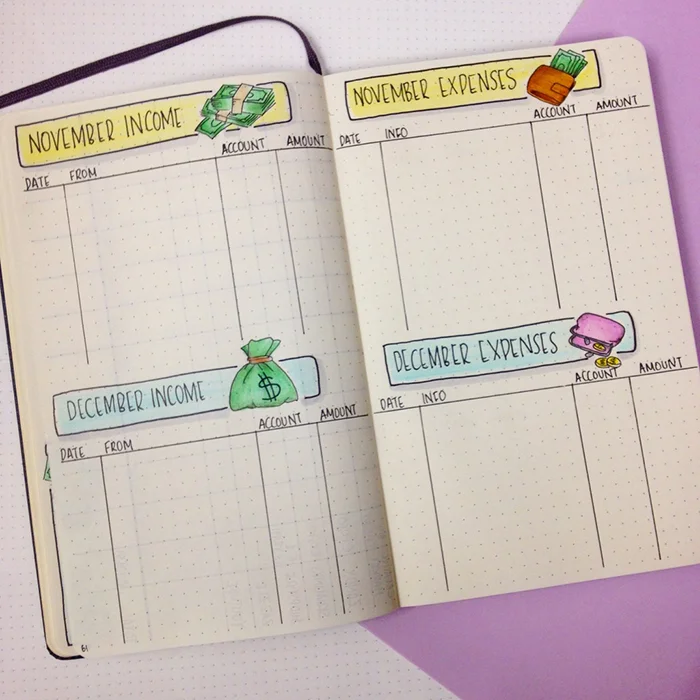 NOVEMBER INCOME
DATE FROM ACCOUNT AMOUNT
$
DECEMBER INCOME
DATE FROM ACCOUNT AMOUNT
61
NOVEMBER EXPENSES
DATE INFO ACCOUNT AMOUNT
DECEMBER EXPENSES
DATE INFO ACCOUNT AMOUNT